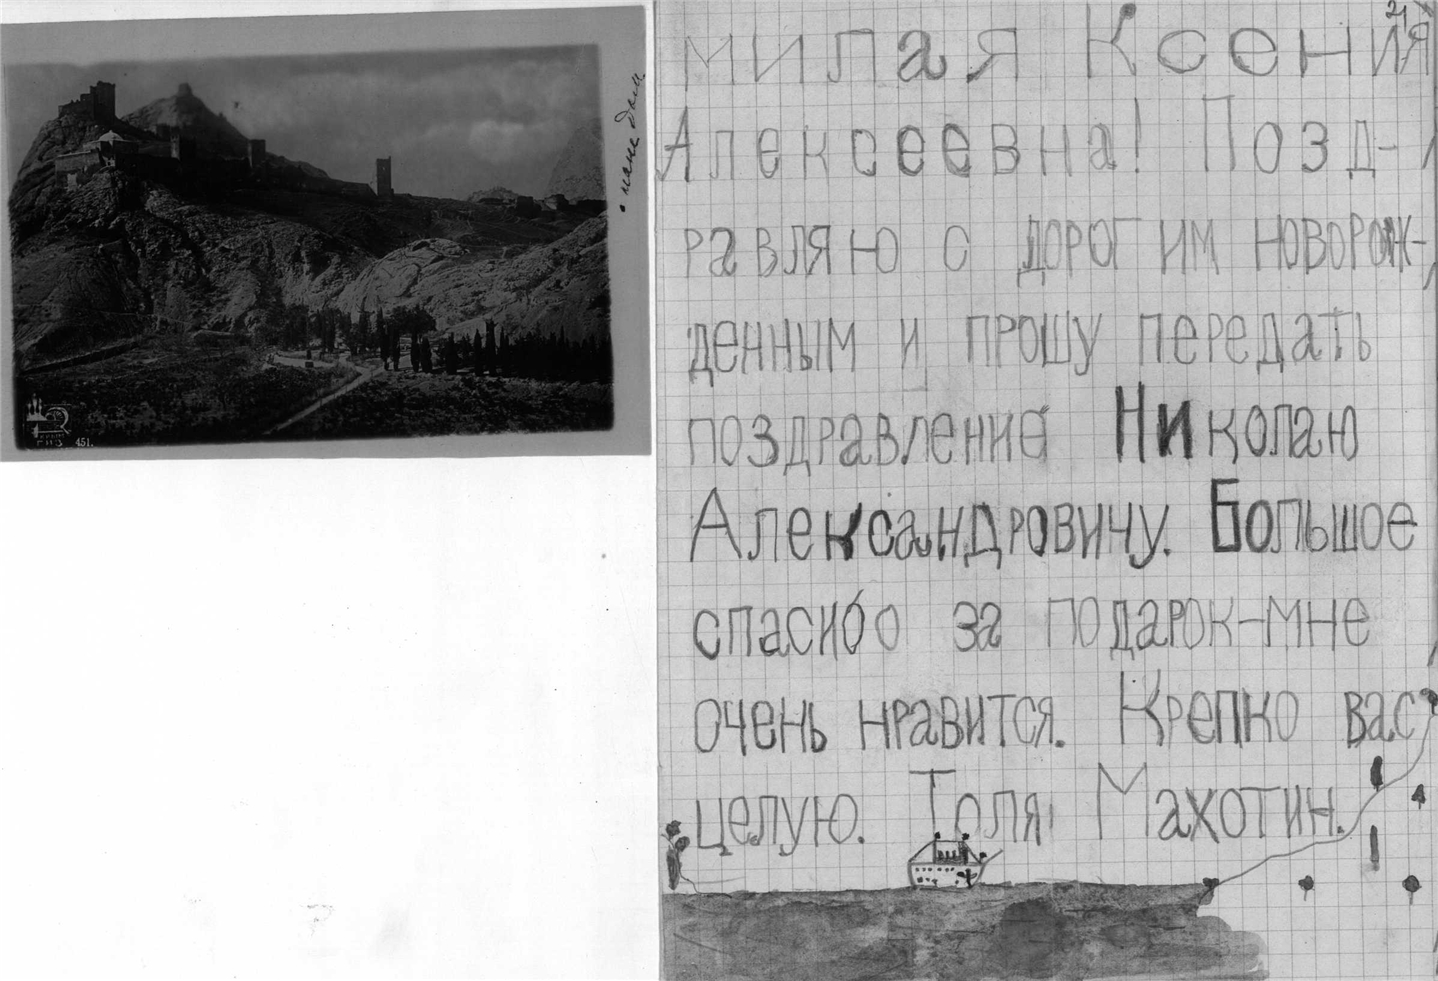 наш дом
451.
21
милая Ксения
Алексеевна! Позд-
равляю с дорогим новорож-
денным и прошу передать
поздравление Николаю
Александровичу. Большое
спасибо за подарок-мне
очень нравится. Крепко вас
целую. Толя Махотин.